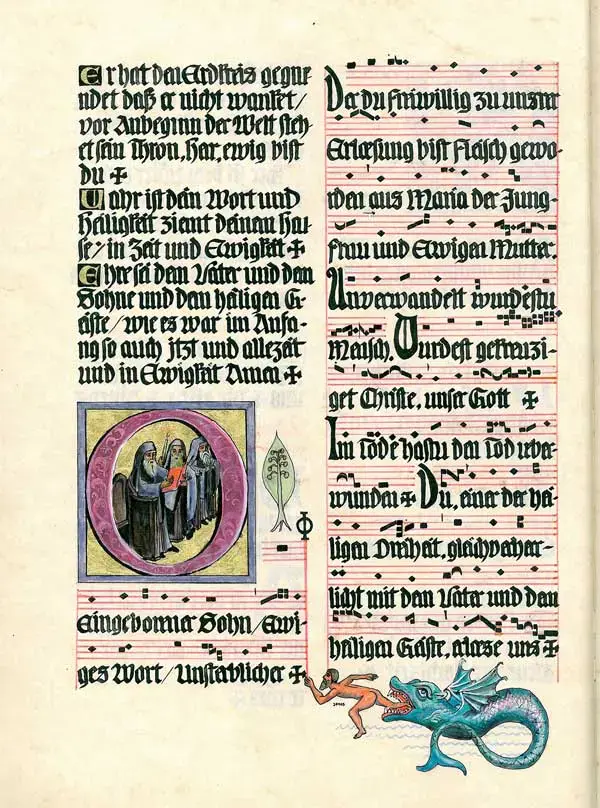 Er hat den Erdkreis gegrü-
ndet daß er nicht wanket /
vor Anbeginn der Welt steh-
et sein Thron, Herr, ewig bist
du ✠
Wahr ist dein Wort und
Heiligkeit zieret deinen Hau-
se / in Zeit und Ewigkeit ✠
Ehre sei dem Vater und dem
Sohne und dem heiligen G-
eiste / wie es war im Anfa-
ng so auch jtzt und allezeit
und in Ewigkeit Amen ✠
O
Φ
Eingeborner Sohn / Ewi-
ges Wort / Unsterblicher ✠
Der du freiwillig zu unsrer
Erlœsung bist Fleisch gewo-
rden aus Maria der Jung-
frau und Ewigen Mutter.
Unverwandelt wurdestu
Mensch. Wurdest gekreuzi-
get Christe, unser Gott ✠
Im Tode hastu den Tod ueber-
wunden ✠ Du, einer der hei-
ligen Dreiheit, gleichverherr-
licht mit dem Vater und dem
heiligen Geiste, erlœse uns ✠
JONAS